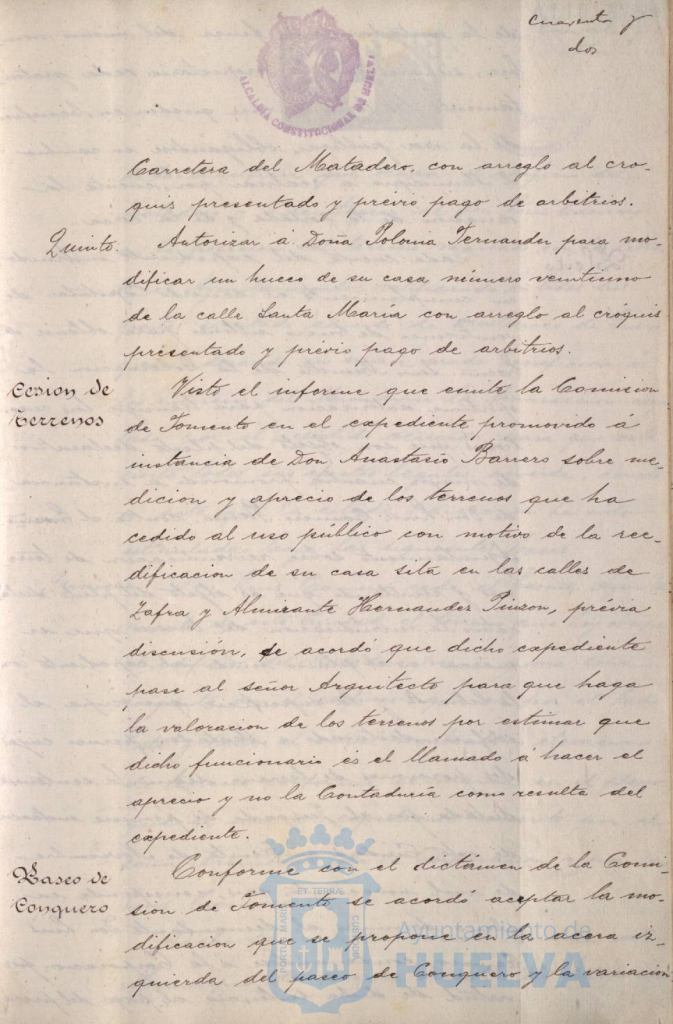 cuarenta y
dos
ALCALDIA CONSTITUCIONAL DE HUELVA
Carretera del Matadero, con arreglo al cro-
quis presentado y prévio pago de arbitrios.
Quinto. Autorizar á Doña Polonia Fernandez para mo-
dificar un hueco de su casa número veintiuno
de la calle Santa María con arreglo al cróquis
presentado y prévio pago de arbitrios.
Cesion de
terrenos
Visto el informe que emite la Comision
de Fomento en el expediente promovido á
instancia de Don Anastasio Barrero sobre me-
dicion y aprecio de los terrenos que ha
cedido al uso público con motivo de la ree-
dificacion de su casa sita en las calles de
Zafra y Almirante Hernandez Pinzon, prévia
discusión, se acordó que dicho expediente
pase al señor Arquitecto para que haga
la valoracion de los terrenos por estimar que
dicho funcionario és el llamado á hacer el
aprecio y no la Contaduría como resulta del
expediente.
Paseo de
Conquero
Conforme con el dictámen de la Comi-
sion de Fomento se acordó aceptar la mo-
dificacion que se propone en la acera iz-
quierda del paseo de Conquero y la variación
PORTUS MARIS ET TERRÆ CUSTODIA
Ayuntamiento de
HUELVA